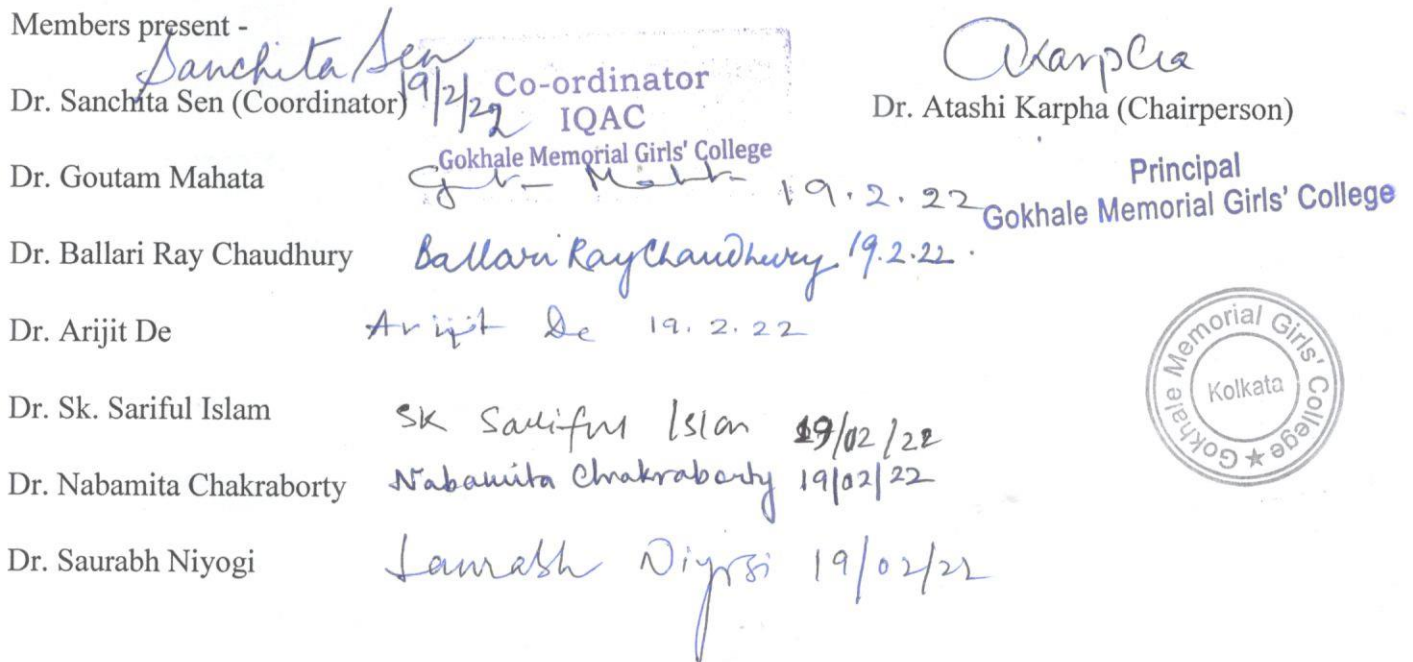 Members present -
Sanchita Sen
19/2/22
Dr. Sanchita Sen (Coordinator)
Co-ordinator
IQAC
Gokhale Memorial Girls' College
AKarpha
Dr. Atashi Karpha (Chairperson)
Principal
Gokhale Memorial Girls' College
Dr. Goutam Mahata
19.2.22
Dr. Ballari Ray Chaudhury
Ballari Ray Chaudhury 19.2.22.
Dr. Arijit De
Arijit De 19.2.22
Dr. Sk. Sariful Islam
SK Sariful Islam 19/02/22
Dr. Nabamita Chakraborty
Nabamita Chakraborty 19/02/22
Dr. Saurabh Niyogi
Saurabh Niyogi 19/02/22
Gokhale Memorial Girls' College ★
Kolkata